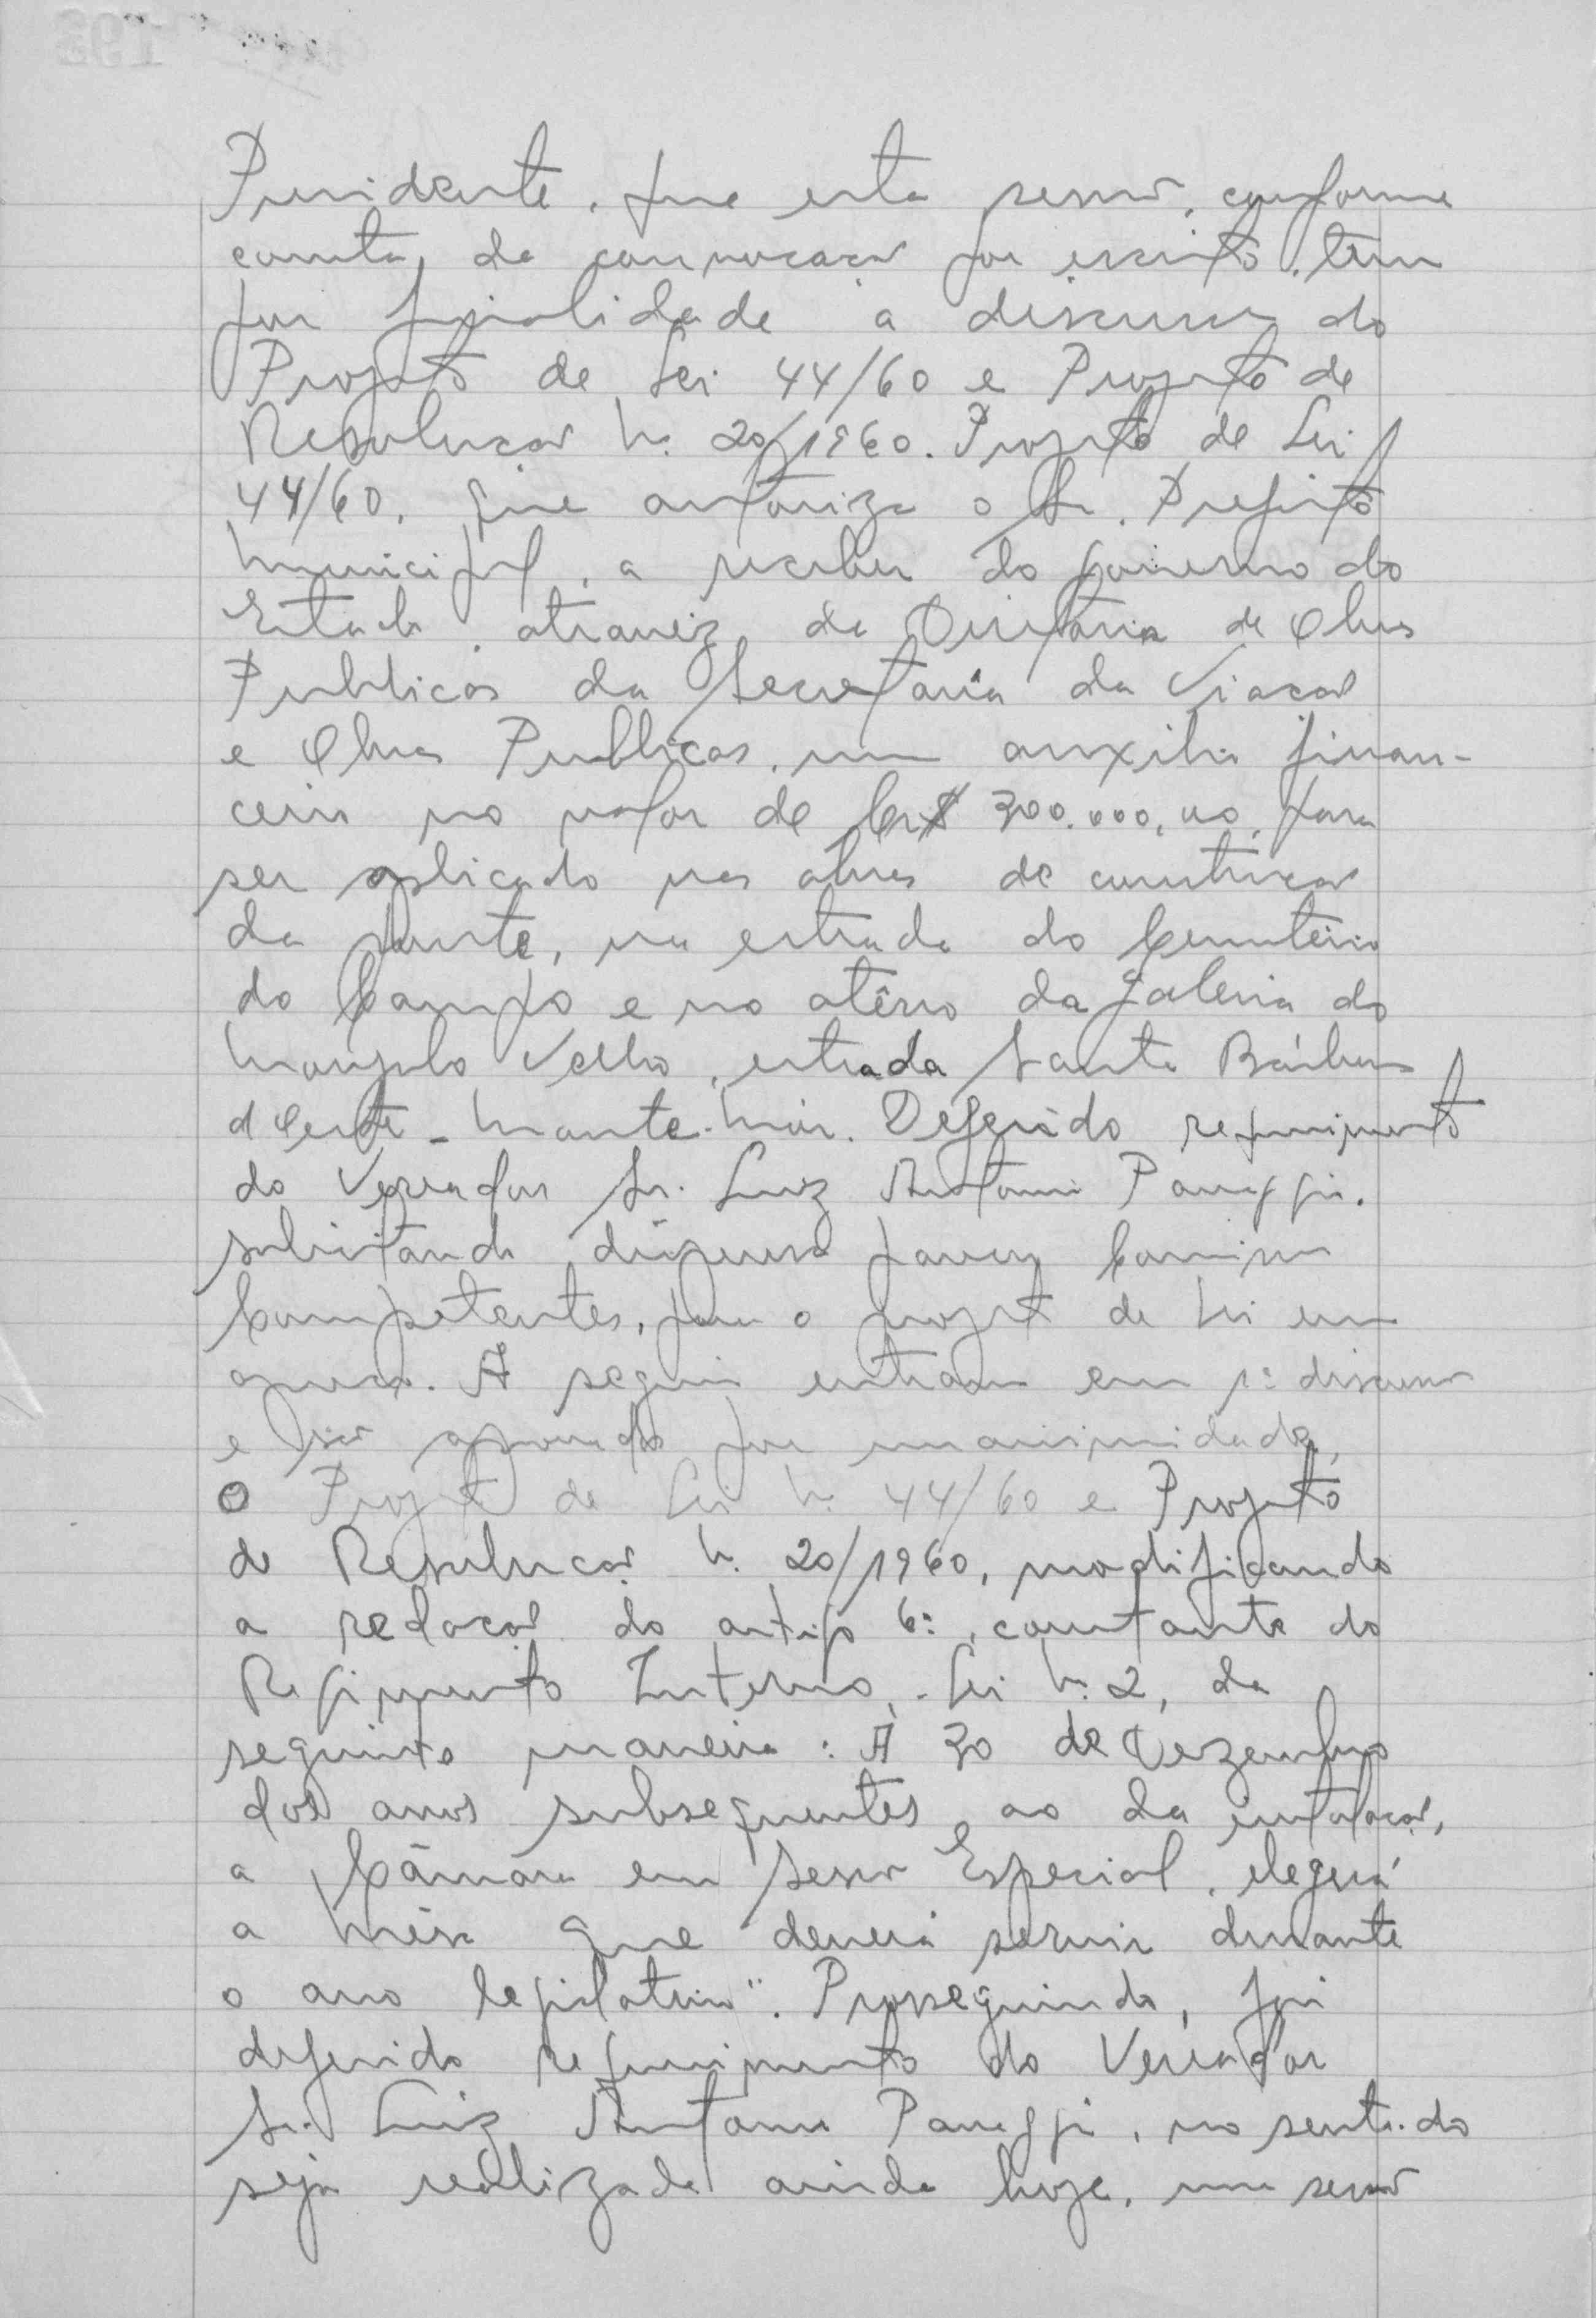 Presidente, que esta sessão, conforme
consta da convocação por escrito, tem
por finalidade a discussão do
Projeto de Lei 44/60 e Projeto de
Resolução N. 20/1960. Projeto de Lei
44/60, que autoriza o Sr. Prefeito
Municipal, a receber do governo do
Estado, atravez da Diretoria de Obras
Publicas da Secretaria da Viação
e Obras Publicas, um auxilio finan-
ceiro no valor de Cr$ 300.000,00, para
ser aplicado nas obras de construção
da ponte, na estrada do Cemitério
do Campo e no atêrro da galeria do
Monjolo Velho, estrada Santa Bárbara
d'Oeste - Monte-Mór. Deferido requerimento
do Vereador Sr. Luiz Antonio Panaggio,
solicitando dispensa parecer Comissões
Competentes, para o projeto de Lei em
apreço. A seguir entram em 1ª discussão
e são aprovados por unanimidade,
o Projeto de Lei N. 44/60 e Projeto
de Resolução N. 20/1960, modificando
a redação do artigo 6º, constante do
Regimento Interno, - Lei N. 2, da
seguinte maneira: A 30 de Dezembro
dos anos subsequentes, ao da instalação,
a Câmara em Sessão Especial, elegerá
a Mêsa que deverá servir durante
o ano legislativo". Prosseguindo, foi
deferido requerimento do Vereador
Sr. Luiz Antonio Panaggio, no sentido
seja realizada ainda hoje, uma sessão